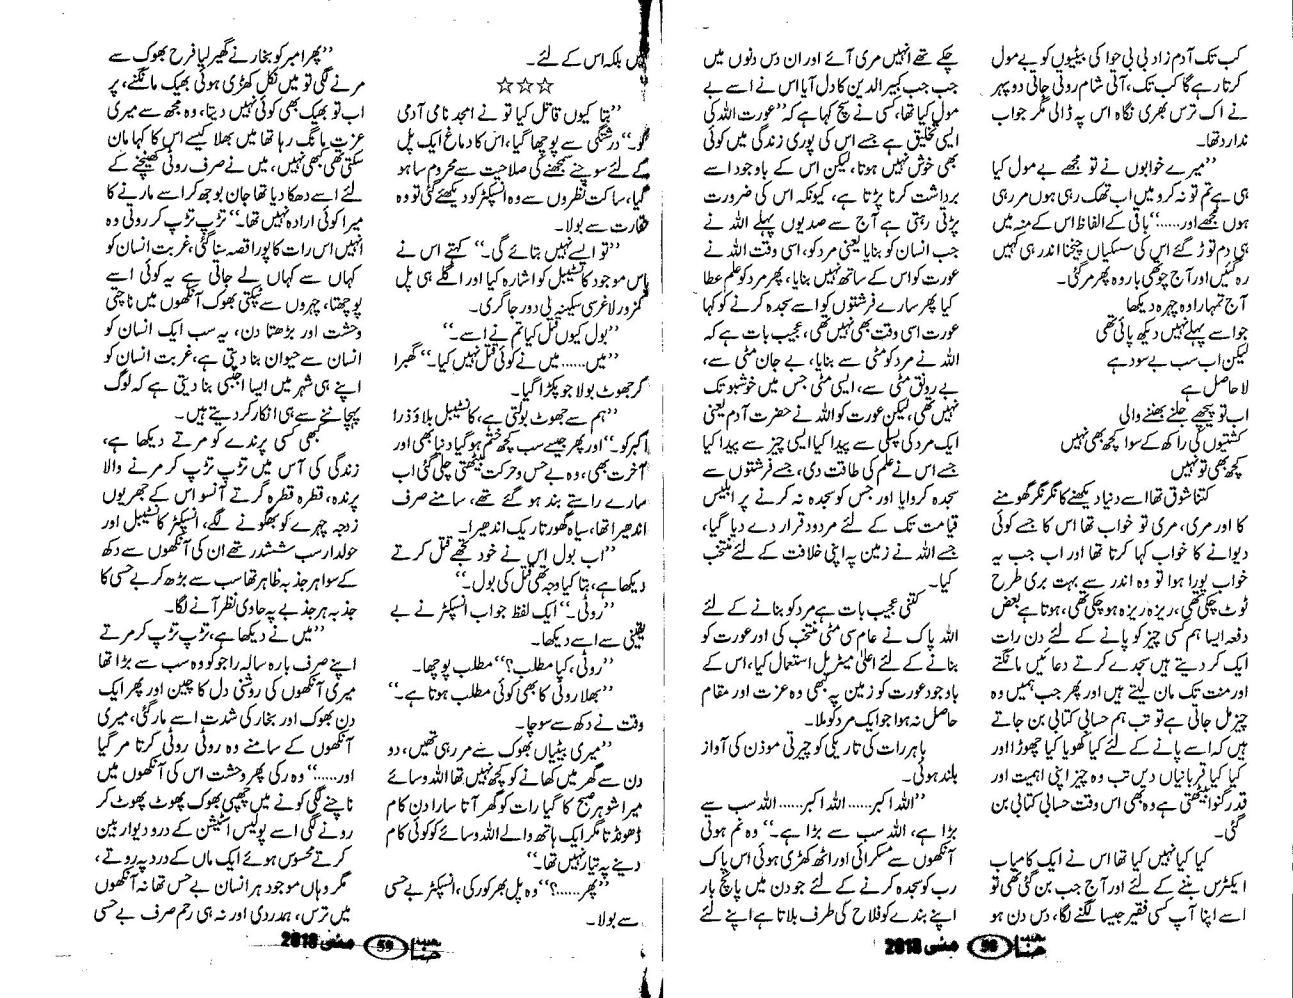 کب تک آدم زاد بی بی حوا کی بیٹیوں کو بے مول
کرتا رہے گا کب تک، آتی شام روتی جاتی دو پہر
نے اک ترس بھری نگاہ اس پہ ڈالی مگر جواب
ندارد تھا۔
’’میرے خوابوں نے تو مجھے بے مول کیا
ہی ہے تم تو نہ کرو میں اب تھک رہی ہوں مر رہی
ہوں مجھے اور......‘‘ باقی کے الفاظ اس کے منہ میں
ہی دم توڑ گئے اس کی سسکیاں چیختا اندر ہی کہیں
رہ گئیں اور آج چوتھی بار وہ پھر مر گئی۔
آج تمہارا وہ چہرہ دیکھا
جو اسے پہلے نہیں دیکھ پائی تھی
لیکن اب سب بے سود ہے
لا حاصل ہے
اب تو پیچھے جلنے بھننے والی
کشتیوں کی راکھ کے سوا کچھ بھی نہیں
کچھ بھی تو نہیں
کتنا شوق تھا اسے دنیا دیکھنے کا نگر نگر گھومنے
کا اور مری، مری تو خواب تھا اس کا جسے کوئی
دیوانے کا خواب کہا کرتا تھا اور اب جب یہ
خواب پورا ہوا تو وہ اندر سے بہت بری طرح
ٹوٹ چکی تھی، ریزہ ریزہ ہو چکی تھی، ہوتا ہے بعض
دفعہ ایسا ہم کسی چیز کو پانے کے لئے دن رات
ایک کر دیتے ہیں سجدے کرتے دعائیں مانگتے
اور منت تک مان لیتے ہیں اور پھر جب ہمیں وہ
چیز مل جاتی ہے تو تب ہم حسابی کتابی بن جاتے
ہیں کہ اسے پانے کے لئے کیا کھویا کیا چھوڑا اور
کیا کیا قربانیاں دیں تب وہ چیز اپنی اہمیت اور
قدر گنوا بیٹھتی ہے وہ بھی اس وقت حسابی کتابی بن
گئی۔
کیا کیا نہیں کیا تھا اس نے ایک کامیاب
ایکٹرس بننے کے لئے اور آج جب بن گئی تھی تو
اسے اپنا آپ کسی فقیر جیسا لگنے لگا، دس دن ہو
چکے تھے انہیں مری آئے اور ان دس دنوں میں
جب جب کبیر الدین کا دل آیا اس نے اسے بے
مول کیا تھا، کسی نے سچ کہا ہے کہ ’’عورت اللہ کی
ایسی تخلیق ہے جسے اس کی پوری زندگی میں کوئی
بھی خوش نہیں ہوتا، لیکن اس کے باوجود اسے
برداشت کرنا پڑتا ہے، کیونکہ اس کی ضرورت
پڑتی رہتی ہے آج سے صدیوں پہلے اللہ نے
جب انسان کو بنایا یعنی مرد کو، اسی وقت اللہ نے
عورت کو اس کے ساتھ نہیں بنایا، پھر مرد کو علم عطا
کیا پھر سارے فرشتوں کو اسے سجدہ کرنے کو کہا
عورت اسی وقت بھی نہیں تھی، عجیب بات ہے کہ
اللہ نے مرد کو مٹی سے بنایا، بے جان مٹی سے،
بے رونق مٹی سے، ایسی مٹی جس میں خوشبو تک
نہیں تھی، لیکن عورت کو اللہ نے حضرت آدم یعنی
ایک مرد کی پسلی سے پیدا کیا ایسی چیز سے پیدا کیا
جسے اس نے علم کی طاقت دی، جسے فرشتوں سے
سجدہ کروایا اور جس کو سجدہ نہ کرنے پر ابلیس
قیامت تک کے لئے مردود قرار دے دیا گیا،
جسے اللہ نے زمین پہ اپنی خلافت کے لئے منتخب
کیا۔
کتنی عجیب بات ہے مرد کو بنانے کے لئے
اللہ پاک نے عام سی مٹی منتخب کی اور عورت کو
بنانے کے لئے اعلیٰ میٹریل استعمال کیا، اس کے
باوجود عورت کو زمین پہ بھی وہ عزت اور مقام
حاصل نہ ہوا جو ایک مرد کو ملا۔
باہر رات کی تاریکی کو چیرتی موذن کی آواز
بلند ہوئی۔
’’اللہ اکبر...... اللہ اکبر...... اللہ سب سے
بڑا ہے، اللہ سب سے بڑا ہے۔‘‘ وہ نم ہوئی
آنکھوں سے مسکرائی اور اٹھ کھڑی ہوئی اس پاک
رب کو سجدہ کرنے کے لئے جو دن میں پانچ بار
اپنے بندے کو فلاح کی طرف بلاتا ہے اپنے لئے
حنا مئی 2018
نہیں بلکہ اس کے لئے۔
☆☆☆
’’بتا کیوں قاتل کیا تو نے امجد نامی آدمی
کو۔‘‘ درشتگی سے پوچھا گیا، اس کا دماغ ایک پل
کے لئے سوچنے سمجھنے کی صلاحیت سے محروم سا ہو
گیا، ساکت نظروں سے وہ انسپکٹر کو دیکھنے گئی تو وہ
حقارت سے بولا۔
’’تو ایسے نہیں بتائے گی۔‘‘ کہتے اس نے
پاس موجود کانسٹیبل کو اشارہ کیا اور اگلے ہی پل
کمزور لاغر سی سکینہ بی دور جا گری۔
’’بول کیوں قتل کیا تم نے اسے۔‘‘
’’میں...... میں نے کوئی قتل نہیں کیا۔‘‘ گھبرا
کر جھوٹ بولا جو پکڑا گیا۔
’’ہم سے جھوٹ بولتی ہے، کانسٹیبل بلاؤ ذرا
اکبر کو۔‘‘ اور پھر جیسے سب کچھ ختم ہو گیا دنیا بھی اور
آخرت بھی، وہ بے حس و حرکت بیٹھتی چلی گئی اب
سارے راستے بند ہو گئے تھے، سامنے صرف
اندھیرا تھا، سیاہ گھور تاریک اندھیرا۔
’’اب بول اس نے خود تجھے قتل کرتے
دیکھا ہے، بتا کیا وجہ تھی قتل کی بول۔‘‘
’’روٹی۔‘‘ ایک لفظ جواب انسپکٹر نے بے
یقینی سے اسے دیکھا۔
’’روٹی، کیا مطلب؟‘‘ مطلب پوچھا۔
’’بھلا روٹی کا بھی کوئی مطلب ہوتا ہے۔‘‘
وقت نے دکھ سے سوچا۔
’’میری بیٹیاں بھوک سے مر رہی تھیں، دو
دن سے گھر میں کھانے کو کچھ نہیں تھا اللہ وسائے
میرا شوہر صبح کا گیا رات کو گھر آتا سارا دن کام
ڈھونڈتا مگر ایک ہاتھ والے اللہ وسائے کو کوئی کام
دینے پہ تیار نہیں تھا۔‘‘
’’پھر......؟‘‘ وہ پل بھر کو رکی، انسپکٹر بے حسی
سے بولا۔
’’پھر امبر کو بخار نے گھیر لیا فرح بھوک سے
مرنے لگی تو میں نکل کھڑی ہوئی بھیک مانگنے، پر
اب تو بھیک بھی کوئی نہیں دیتا، وہ مجھ سے میری
عزت مانگ رہا تھا میں بھلا کیسے اس کا کہا مان
سکتی تھی کبھی نہیں، میں نے صرف روٹی کھینچنے کے
لئے اسے دھکا دیا تھا جان بوجھ کر اسے مارنے کا
میرا کوئی ارادہ نہیں تھا۔‘‘ تڑپ تڑپ کر روتی وہ
انہیں اس رات کا پورا قصہ سنا گئی، غربت انسان کو
کہاں سے کہاں لے جاتی ہے یہ کوئی اسے
پوچھتا، چہروں سے ٹپکتی بھوک آنکھوں میں ناچتی
وحشت اور بڑھتا دن، یہ سب ایک انسان کو
انسان سے حیوان بنا دیتی ہے، غربت انسان کو
اپنے ہی شہر میں ایسا اجنبی بنا دیتی ہے کہ لوگ
پہچاننے سے ہی انکار کر دیتے ہیں۔
کبھی کسی پرندے کو مرتے دیکھا ہے،
زندگی کی آس میں تڑپ تڑپ کر مرنے والا
پرندہ، قطرہ قطرہ گرتے آنسو اس کے جھریوں
زدہ چہرے کو بھگونے لگے، انسپکٹر کانسٹیبل اور
حولدار سب ششدر تھے ان کی آنکھوں سے دکھ
کے سوا ہر جذبہ ظاہر تھا سب سے بڑھ کر بے حسی کا
جذبہ ہر جذبے پہ حاوی نظر آنے لگا۔
’’میں نے دیکھا ہے، تڑپ تڑپ کر مرتے
اپنے صرف بارہ سالہ راجو کو وہ سب سے بڑا تھا
میری آنکھوں کی روشنی دل کا چین اور پھر ایک
دن بھوک اور بخار کی شدت اسے مار گئی، میری
آنکھوں کے سامنے وہ روٹی روٹی کرتا مر گیا
اور......‘‘ وہ رکی پھر وحشت اس کی آنکھوں میں
ناچنے لگی کونے میں چھپی بھوک پھوٹ پھوٹ کر
رونے لگی اسے پولیس اسٹیشن کے در و دیوار بین
کرتے محسوس ہوئے ایک ماں کے درد پہ روتے،
مگر وہاں موجود ہر انسان بے حس تھا نہ آنکھوں
میں ترس، ہمدردی اور نہ ہی رحم صرف بے حسی
حنا 59 مئی 2018